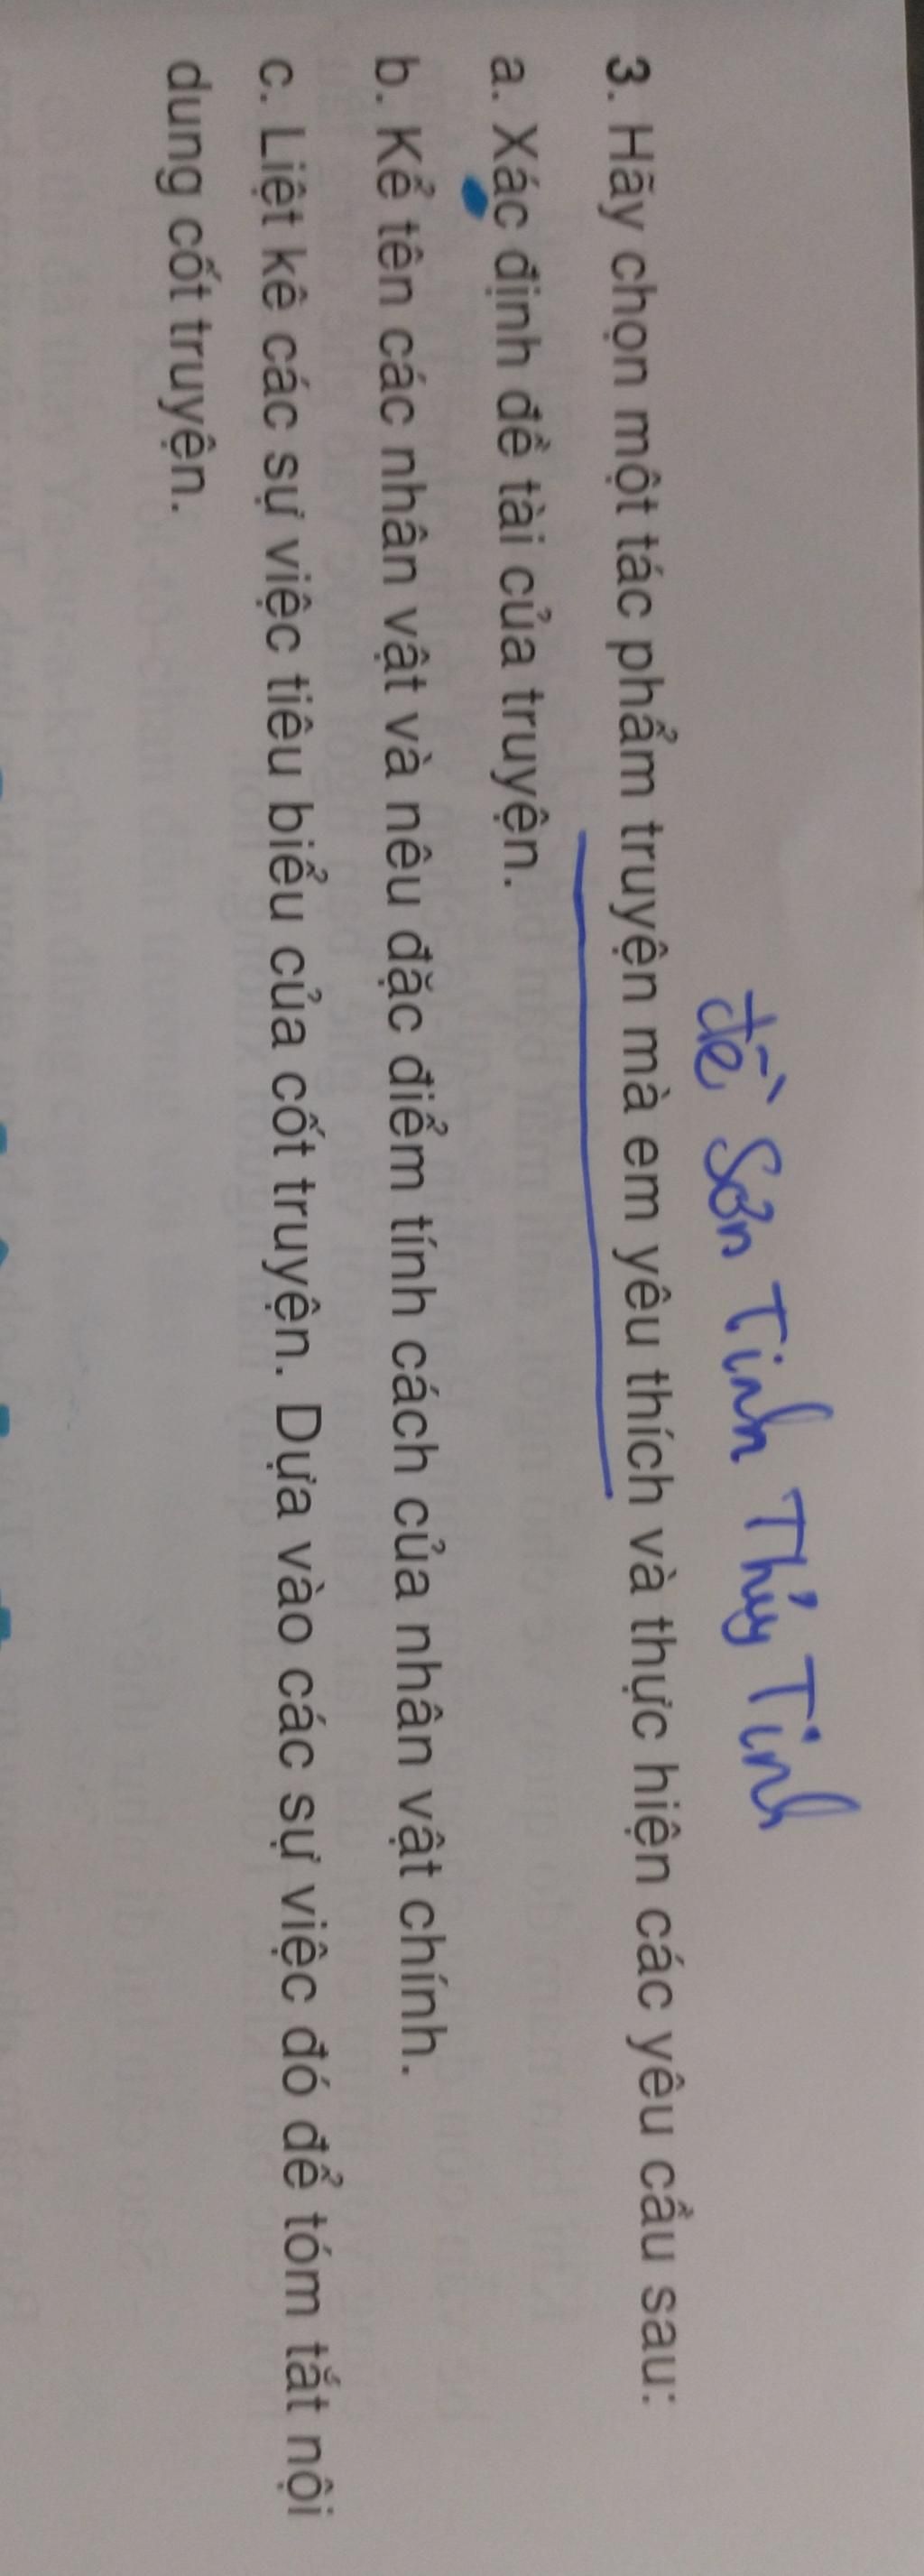 đề Sơn Tinh Thủy Tinh
3. Hãy chọn một tác phẩm truyện mà em yêu thích và thực hiện các yêu cầu sau:
a. Xác định đề tài của truyện.
b. Kể tên các nhân vật và nêu đặc điểm tính cách của nhân vật chính.
c. Liệt kê các sự việc tiêu biểu của cốt truyện. Dựa vào các sự việc đó để tóm tắt nội
dung cốt truyện.